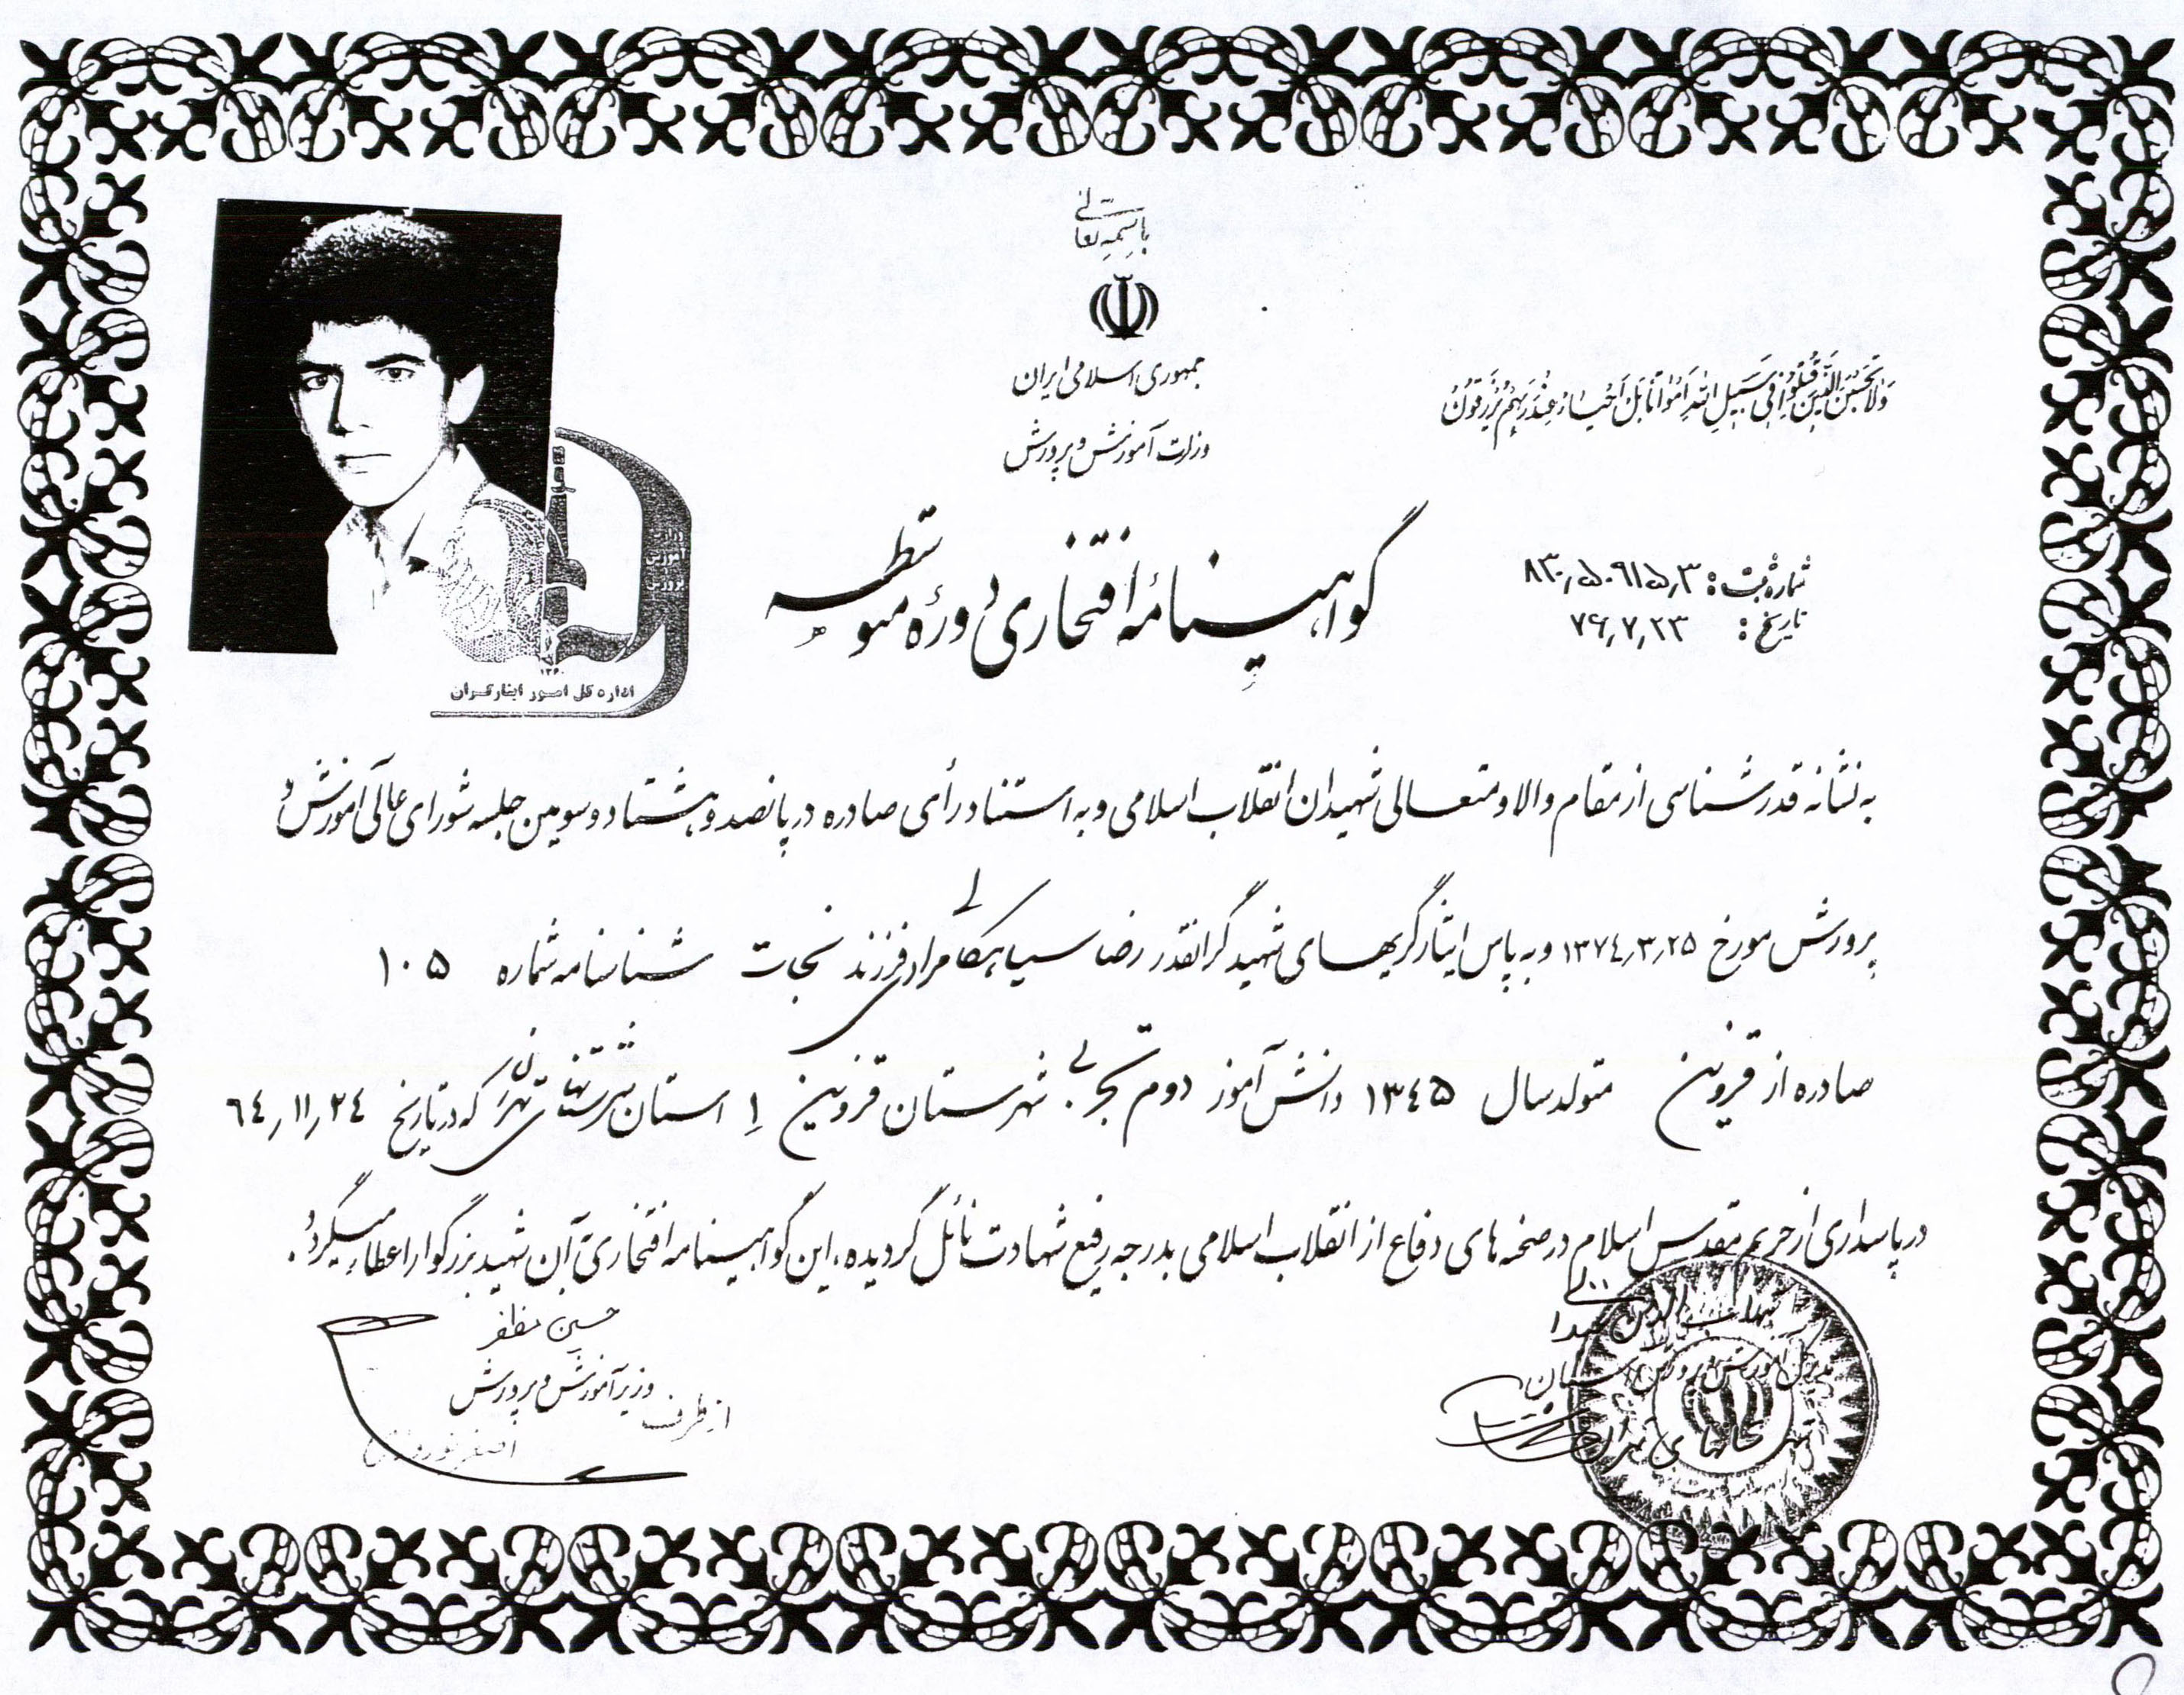 باسمه تعالی
جمهوری اسلامی ایران
وزارت آموزش و پرورش
وَلاتَحْسَبَنَّ الَّذینَ قُتِلُوا فی سَبیلِ اللهِ اَمْواتاً بَلْ اَحْیاءٌ عِنْدَ رَبِّهِمْ یُرْزَقُونَ
گواهینامهٔ افتخاری دورهٔ متوسطه
شماره ثبت:
تاریخ: ۷۶٫۷٫۲۳
وزارت
آموزش
پرورش
۱۳۶۰
اداره کل امور ایثارگران
به نشانه قدرشناسی از مقام والا و متعالی شهیدان انقلاب اسلامی و به استناد رأی صادره در پانصد و هشتاد و سومین جلسه شورای عالی آموزش و
پرورش مورخ ۱۳۷٤٫۳٫۲۵ و به پاس ایثارگریهای شهید گرانقدر رضا سیاهکالی مرادی فرزند نجات شناسنامه شماره ۱۰۵
صادره از قزوین متولد سال ۱۳٤۵ دانش آموز دوم تجربی شهرستان قزوین ۱ استان شهرستانهای تهران که در تاریخ ٦٤٫۱۱٫۲٤
در پاسداری از حریم مقدس اسلام در صحنه های دفاع از انقلاب اسلامی بدرجه رفیع شهادت نائل گردیده، این گواهینامه افتخاری به آن شهید بزرگوار اعطاء میگردد.
حسین مظفر
وزیر آموزش و پرورش
از طرف
مدیرکل آموزش و پرورش استان
شهرستانهای تهران